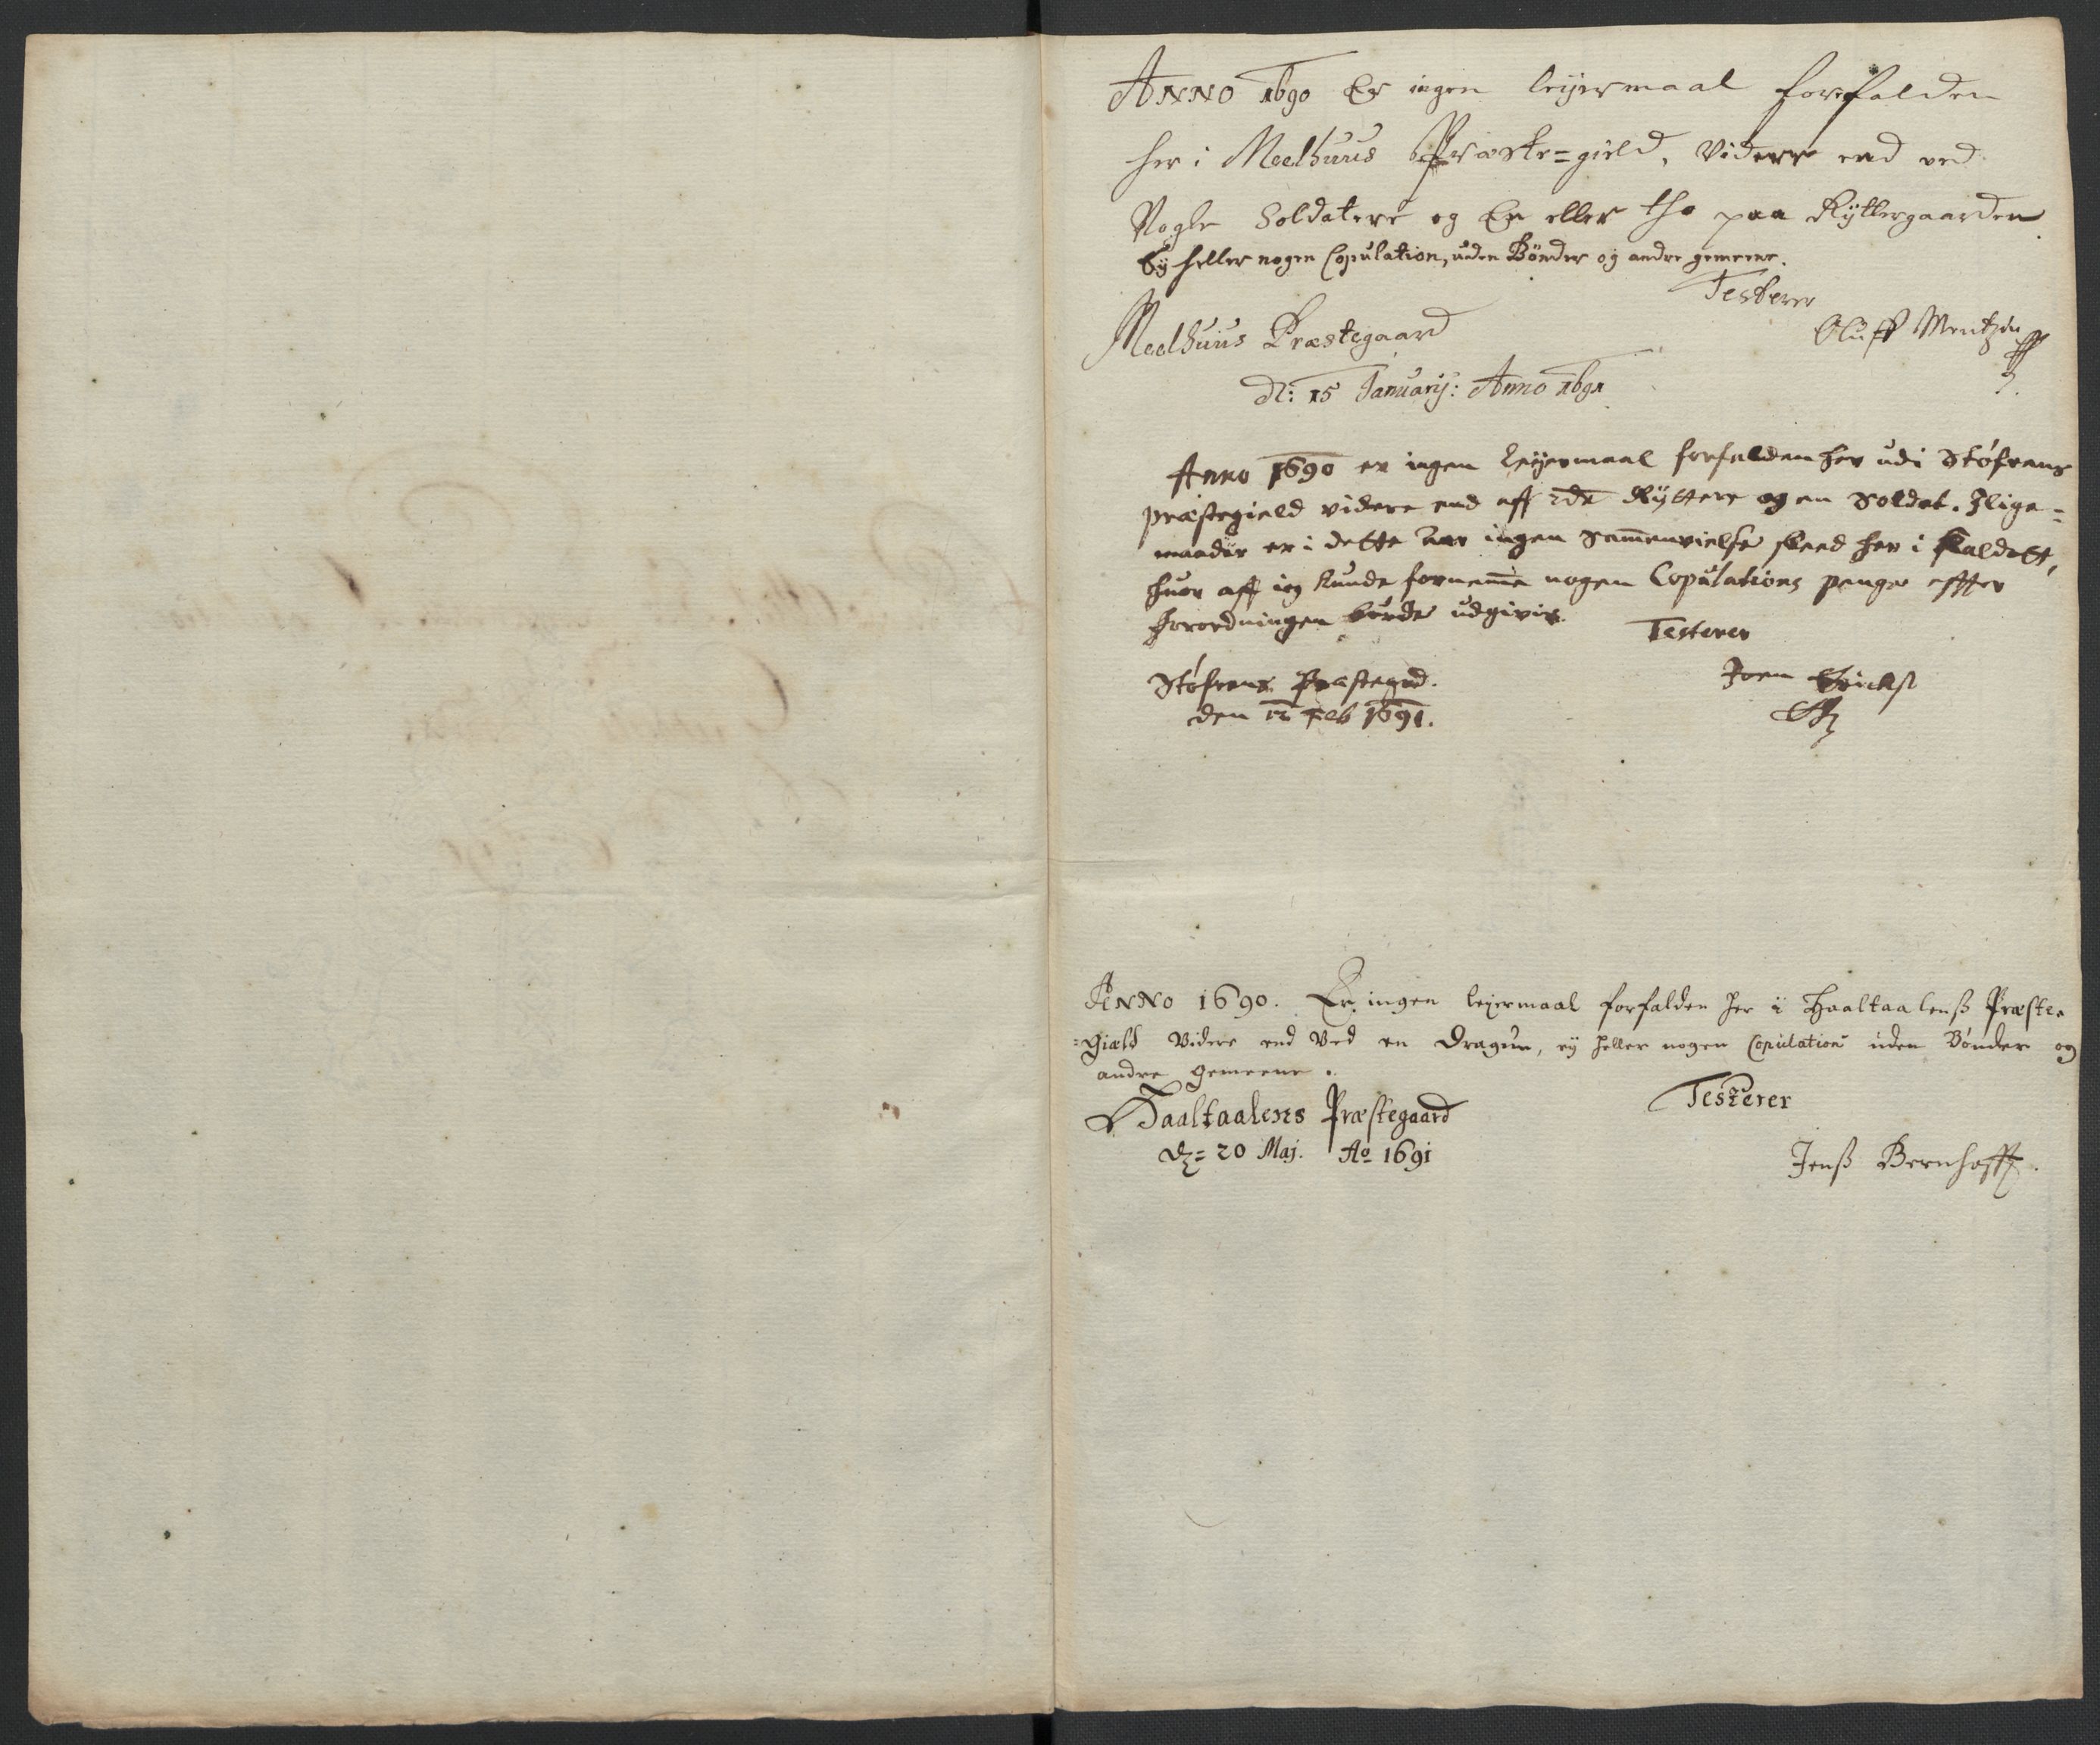 Anno 1690 Er ingen leyermaal forefalden
her i Meelhuus Præste=gield, Videre end ved
Nogle Soldatere og En eller tho paa Ryttergaarden
Ey heller nogen Copulation, uden Bønder og andre gemeene.
Testerer
Meelhuus Præstegaard
Oluff Mentzen
dl: 15 January: Anno 1691
Anno 1690 er ingen Leyermaal forfalden her udi Støfrens
præstegield videre end aff 2de Ryttere og en Soldat. Jlige=
maader er i dette Aar ingen Sammenvielse skeed her i Kaldett,
huor aff ieg kunde fornemme nogen Copulations penge effter
forordningen burde udgivis.
Testerer
Støfrens Præstegrd.
Joen Ericks
den 12 Feb 1691.
Anno 1690. Er ingen leyermaal forfalden her ii Haaltaalenß Præste
=Giæld Videre end Ved en Dragun, ey heller nogen Copulation uden Bønder og
andre Gemeene.
Testerer
Haaltaalens Præstegaard
d= 20 Maj. Ao 1691
Jenß Bernhoff.